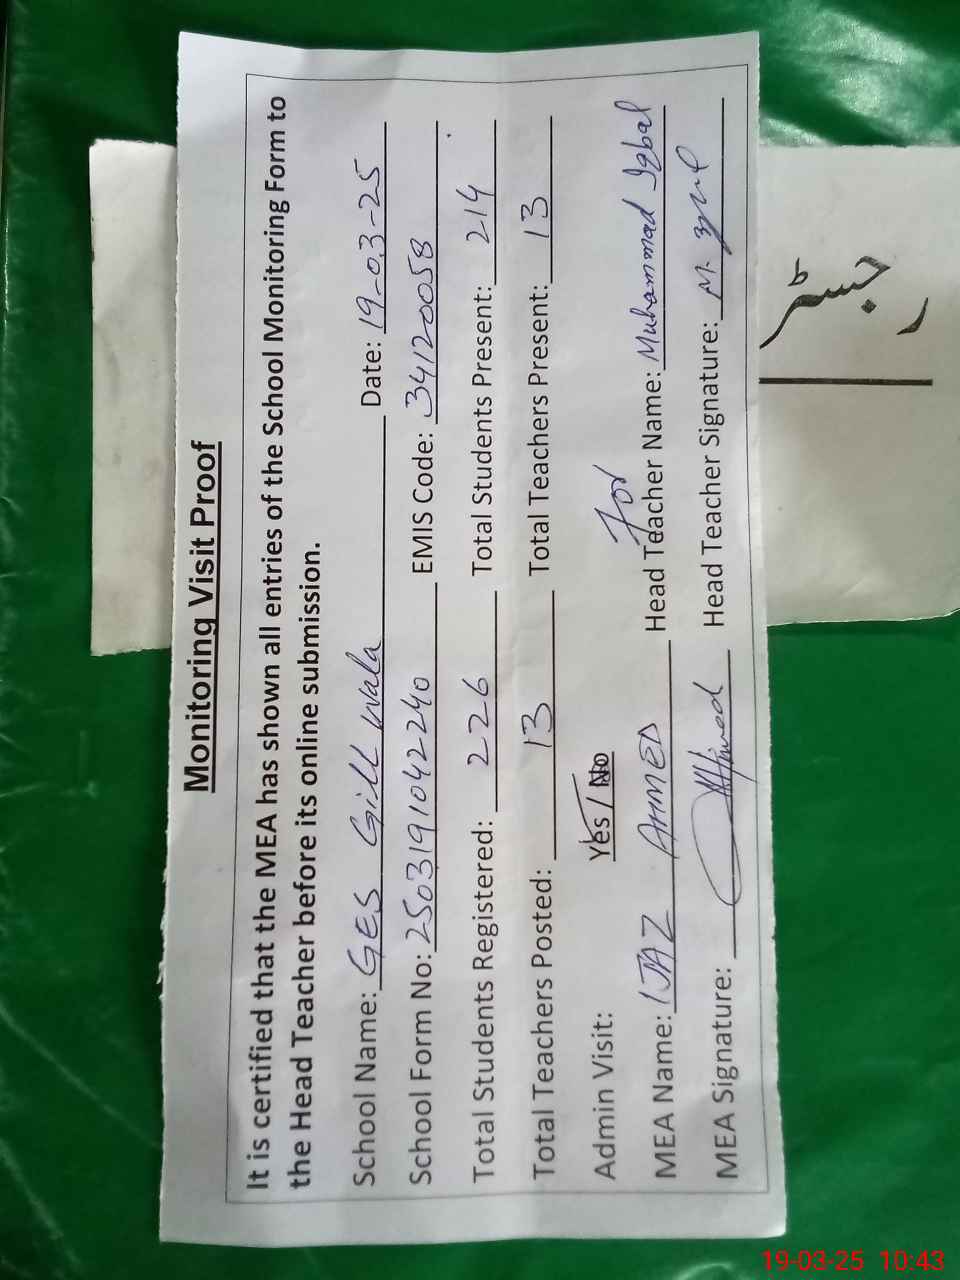 Monitoring Visit Proof
It is certified that the MEA has shown all entries of the School Monitoring Form to
the Head Teacher before its online submission.
School Name: GES Gill Wala Date: 19-03-25
School Form No: 2503191042240 EMIS Code: 34120058
Total Students Registered: 226 Total Students Present: 214
Total Teachers Posted: 13 Total Teachers Present: 13
Admin Visit: Yes / No For
MEA Name: IJAZ AHMED Head Teacher Name: Muhammad Iqbal
MEA Signature: Head Teacher Signature: M.
رجسٹر
19-03-25 10:43